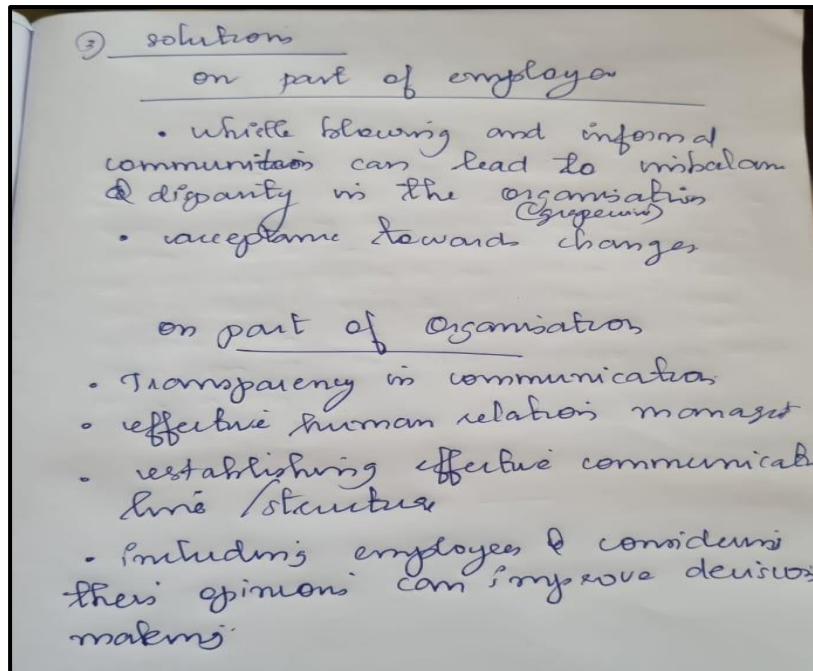 ③ solutions
on part of employee
• whistle blowing and informal
communication can lead to imbalan
& disparity in the organisation
(Grapevine)
• acceptance towards changes
on part of organisation
• Transparency in communication
• effective human relation managt
• establishing effective communicat
line /structure
• including employees & considering
their opinions can improve decision
making.